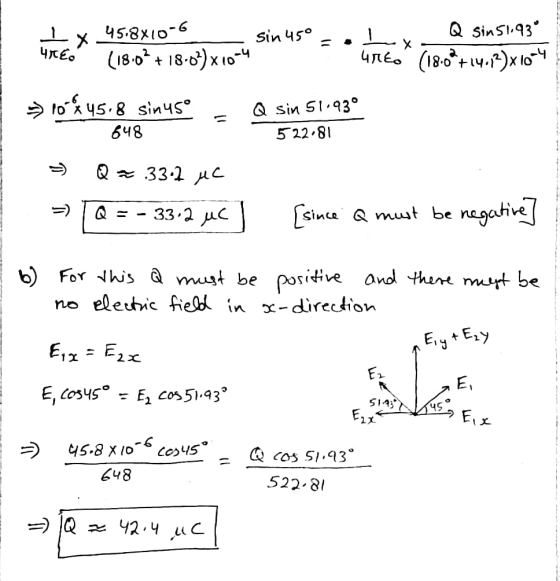 1/4πε₀ × 45.8×10⁻⁶/(18.0² + 18.0²)×10⁻⁴ sin 45° = • 1/4πε₀ × Q sin 51.93°/(18.0² + 14.1²)×10⁻⁴
⇒ 10⁻⁶ × 45.8 sin 45°/648 = Q sin 51.93°/522.81
⇒ Q ≈ 33.2 μC
⇒ Q = - 33.2 μC [since Q must be negative]
b) For this Q must be positive and there must be
no electric field in x-direction
E₁y + E₂y
E₁x = E₂x
E₂
E₁
E₁ cos45° = E₂ cos 51.93°
51.93°
45°
E₂x
E₁x
⇒ 45.8 × 10⁻⁶ cos45°/648 = Q cos 51.93°/522.81
⇒ Q ≈ 42.4 μC